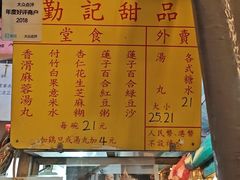 大众点评
年度好评商户
2018
勤記甜品
堂食
外賣
香滑麻蓉湯丸
付竹白果意米水
杏仁花生糊
蓮子百合紅豆沙
蓮子百合綠豆沙
每碗21元
加鷄旦或湯丸加4元
湯丸
大小
25.21
各式糖水
21
人民幣、港幣
不設